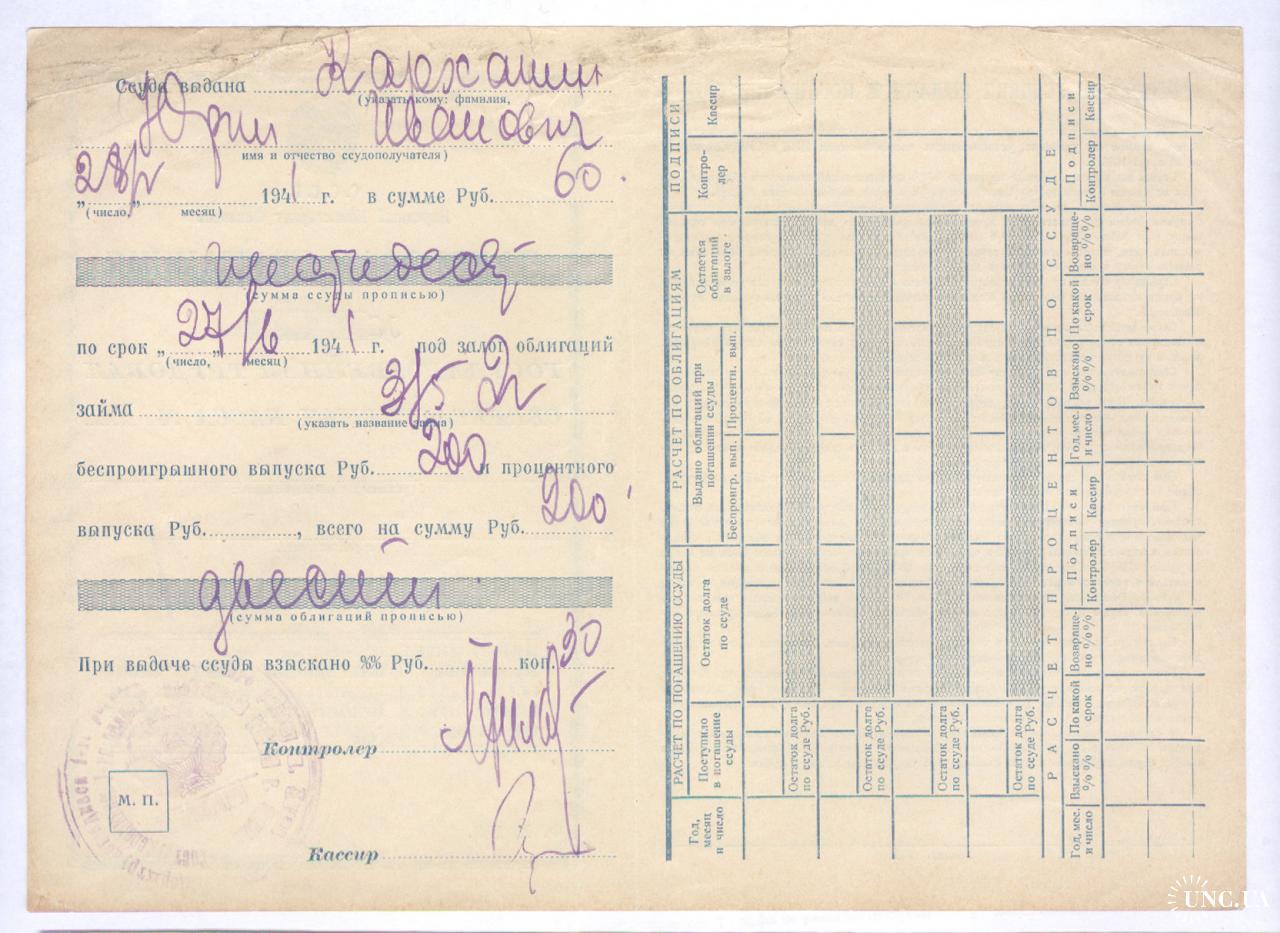 Ссуда выдана Кархашин
(указать кому: фамилия,
Юрий Иванович
имя и отчество ссудополучателя)
„28/IV“ 1941 г. в сумме Руб. 60.
(число, месяц)
шестьдесят
(сумма ссуды прописью)
по срок „27/6“ 1941 г. под залог облигаций
(число, месяц)
займа 3/5 2г
(указать название займа)
беспроигрышного выпуска Руб. 200 и процентного
выпуска Руб. , всего на сумму Руб. 200
двести
(сумма облигаций прописью)
При выдаче ссуды взыскано %% Руб. коп. 30
Контролер
М. П.
Кассир
РАСЧЕТ ПО ПОГАШЕНИЮ ССУДЫ
РАСЧЕТ ПО ОБЛИГАЦИЯМ
ПОДПИСИ
Год, месяц и число
Поступило в погашение ссуды
Остаток долга по ссуде
Выдано облигаций при погашении ссуды
Беспроигр. вып.
Процентн. вып.
Остается облигаций в залоге
Контролер
Кассир
Остаток долга по ссуде Руб.
Остаток долга по ссуде Руб.
Остаток долга по ссуде Руб.
Остаток долга по ссуде Руб.
РАСЧЕТ ПРОЦЕНТОВ ПО ССУДЕ
Год, мес. и число
Взыскано %%
По какой срок
Возвращено %%
Подписи
Контролер
Кассир
Год, мес. и число
Взыскано %%
По какой срок
Возвращено %%
Подписи
Контролер
Кассир
UNC.UA